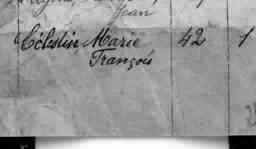 Jean
Célestin Marie 42 1
François